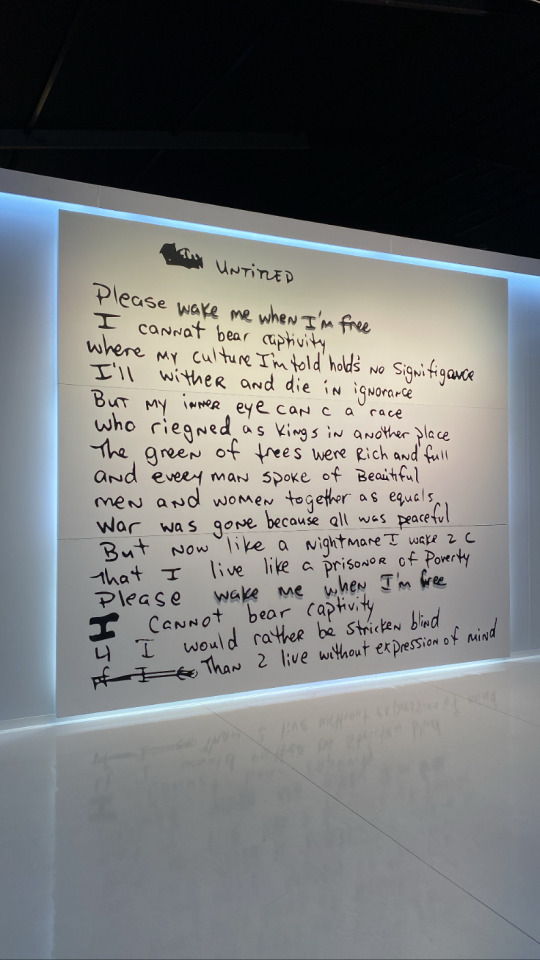 UNTITLED
Please wake me when I'm free
I cannat bear captivity
where my culture I'm told holds no Signifigance
I'll wither and die in ignorance
But my inner eye can c a race
who riegned as kings in another place
The green of trees were Rich and full
and every man spoke of Beautiful
men and women together as equals
War was gone because all was peaceful
But now like a nightmare I wake 2 C
That I live like a prisonor of Poverty
Please wake me when I'm free
I cannot bear captivity
4 I would rather be stricken blind
Than 2 live without expression of mind